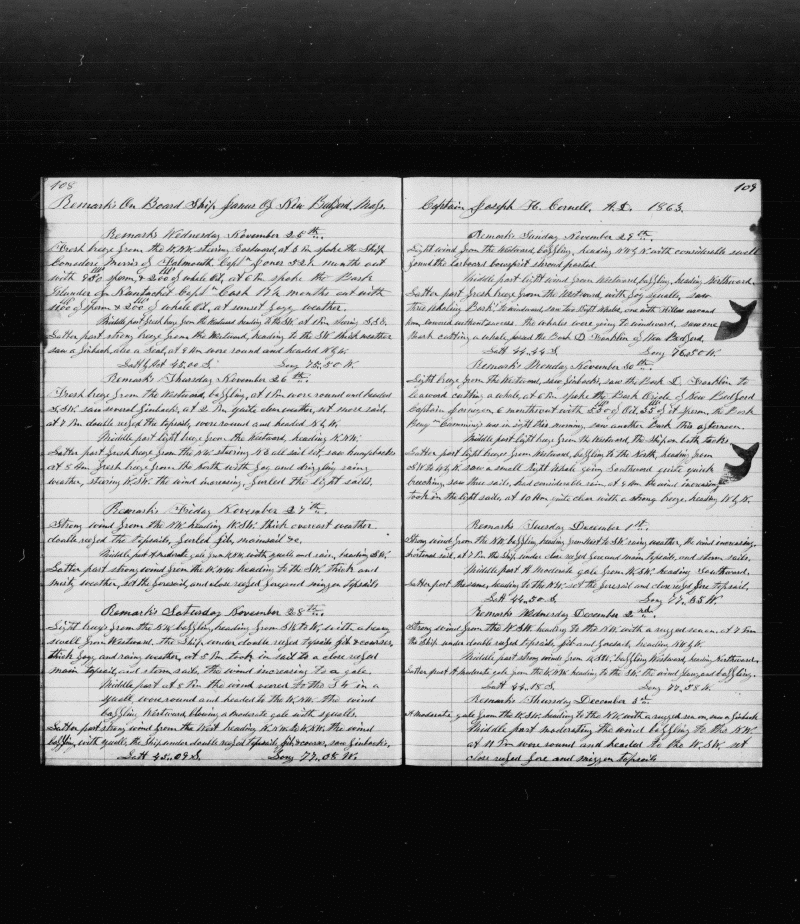 108
Remarks On Board Ship Janus Of New Bedford, Mass.
Remarks Wednesday November 25th.
Fresh breeze from the W.N.W. steering Eastward, at 3 Pm spoke the Ship
Comodore Morris of Falmouth Captn Jones 52½ months out
with 450 sperm, & 200 of whale Oil, at 6 Pm spoke the Bark
Islander of Nantucket Captn Cash months out with
1100 of sperm & 200 of whale Oil, at sunset foggy weather.
Middle part fresh breeze from the Westward heading to the SW. at 1 Am steering S.S.E.
Latter part strong breeze from the Westward, heading to the SW. thick weather
saw a finback, also a Seal, at 9 Am wore round and headed N by W.
Latt by Acct 45.00 S. Long 75.50 W.
Remarks Thursday November 26th.
Fresh breeze from the Westward, baffling, at 1 Pm wore round and headed
S.SW. saw several finbacks, at 2 Pm quite clear weather, set more sail,
at 7 Pm double reefed the topsails, wore round and headed N by W.
Middle part light breeze from the Westward, heading N.NW.
Latter part fresh breeze from the NW. steering W.S all sail set, saw humpbacks
at 8 Am. fresh breeze from the North with fog and drizzling rainy
weather, steering W.SW. the wind increasing, furled the light sails.
Remarks Friday November 27th.
Strong wind from the NW. heading W.SW. thick overcast weather
double reefed the topsails, furled jib, mainsail &c.
Middle part A moderate gale from N.NW. with squalls and rain, heading SW.
Latter part strong wind from the W.NW. heading to the SW. thick and
misty weather, set the foresail, and close reefed fore and mizzen topsails
Remarks Saturday November 28th.
Light breeze from the NW. baffling, heading from SW. to W. with a heavy
swell from Westward, the Ship under double reefed topsails jib & courses,
thick fog and rainy weather, at 5 Pm took in sail to a close reefed
main topsail, and storm sails, the wind increasing to a gale.
Middle part at 8 Pm the wind veered to the SW in a
squall, wore round and headed to the W.NW. the wind
baffling Westward, blowing a moderate gale with squalls.
Latter part strong wind from the West heading N.NW. to W.NW. the wind
baffling, with squalls, the Ship under double reefed topsails, jib & courses, saw finbacks.
Latt 45.09 S. Long 77.08 W.
109
Captain Joseph H. Cornell. A.D. 1863.
Remarks Sunday November 29th.
Light wind from the Westward, baffling, heading NW by N. with considerable swell
found the larboard bowsprit shroud parted.
Middle part light wind from Westward, baffling, heading Northward.
Latter part fresh breeze from the Westward, with fog squalls, saw
three Whaling Barks to windward, saw two Right Whales, one with Killers around
him, lowered without success. the whales were going to windward, saw one
Bark cutting a whale, passed the Bark D. Franklin of New Bedford,
Latt 44.44 S. Long 76.50 W.
Remarks Monday November 30th.
Light breeze from the Westward, saw finbacks, saw the Bark D. Franklin to
leeward cutting a whale, at 6 Pm spoke the Bark of New Bedford
Captain 6 months out with 550 of Oil, 35 of it sperm, the Bark
Henry Cumming's was in sight this morning, saw another Bark this afternoon.
Middle part light breeze from the Westward, the Ship on both tacks
Latter part light breeze from Westward, baffling to the North, heading from
SW. to W by N. saw a small Right Whale going Southward quite quick
breaching, saw three sails, had considerable rain, at 9 Am the wind increasing
took in the light sails, at 10 Am quite clear with a strong breeze, heading W by N.
Remarks Tuesday December 1st.
Strong wind from the NW. baffling, heading from West to SW. rainy weather, the wind increasing,
shortened sail, at 7 Pm the Ship under close reefed fore and main topsails, and storm sails.
Middle part A moderate gale from W.SW. heading Southward.
Latter part the same, heading to the NW. set the foresail and close reefed fore topsail.
Latt 44.30 S. Long 77.35 W.
Remarks Wednesday December 2nd.
Strong wind from the W.SW. heading to the NW. with a rugged sea on, at 7 Pm
the Ship under double reefed topsails, jib and foresail, heading NW by N.
Middle part strong wind from W.SW. baffling Westward, heading Northward.
Latter part A moderate gale from the W.NW. heading to the SW. the wind flawy and baffling.
Latt 44.18 S. Long 77.38 W.
Remarks Thursday December 3rd.
A moderate gale from the W.SW. heading to the NW. with a rugged sea on, saw a finback
Middle part moderating the wind baffling to the NW.
at 11 Pm wore round and headed to the W.SW. set
close reefed fore and mizzen topsails